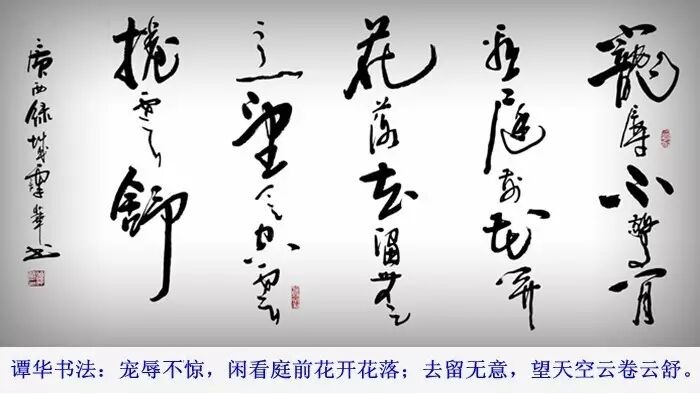 寵辱不驚閒
看庭前花開
花落去留無
意望天空雲
捲雲舒
廣西綠城譚華书
谭华书法：宠辱不惊，闲看庭前花开花落；去留无意，望天空云卷云舒。